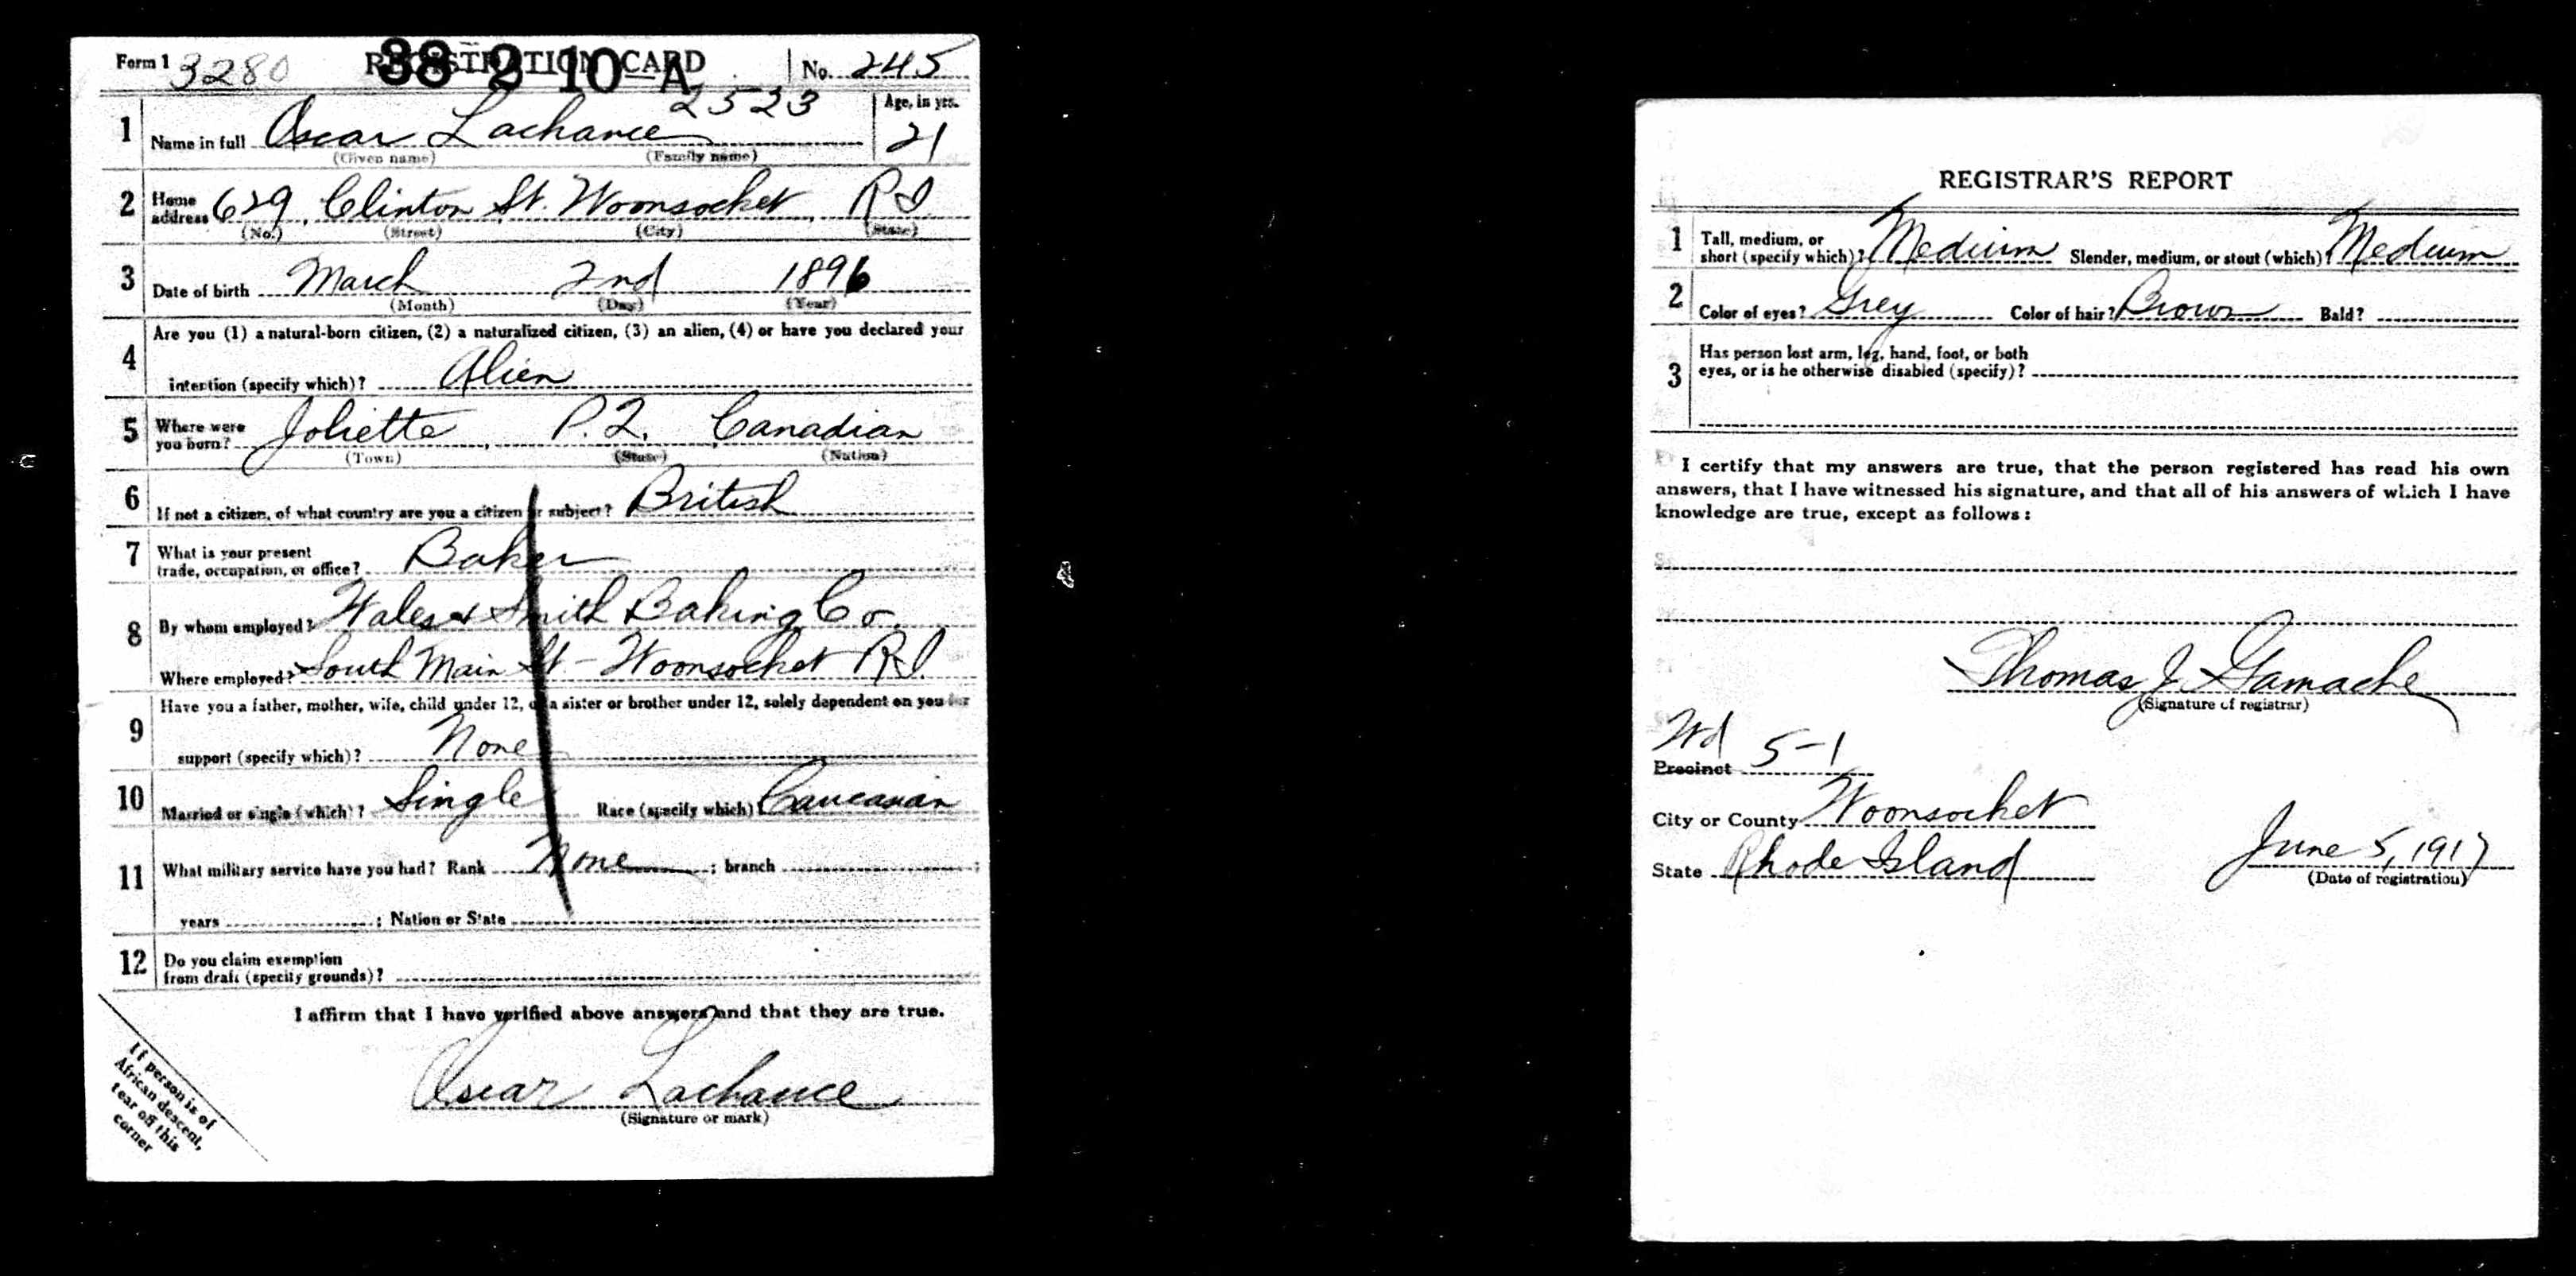 Form 1 3280 REGISTRATION CARD No. 245
38 2 10 A
2523
1 Name in full Oscar Lachance Age, in yrs. 21
(Given name) (Family name)
2 Home address 629, Clinton St. Woonsocket, R I
(No.) (Street) (City) (State)
3 Date of birth March 2nd 1896
(Month) (Day) (Year)
4 Are you (1) a natural-born citizen, (2) a naturalized citizen, (3) an alien, (4) or have you declared your
intention (specify which)? Alien
5 Where were you born? Joliette, P.Q. Canadian
(Town) (State) (Nation)
6 If not a citizen, of what country are you a citizen or subject? British
7 What is your present
trade, occupation, or office? Baker
8 By whom employed? Wales & Smith Baking Co.
Where employed? South Main St - Woonsocket R.I.
9 Have you a father, mother, wife, child under 12, or a sister or brother under 12, solely dependent on you for
support (specify which)? None
10 Married or single (which)? Single Race (specify which)? Caucasian
11 What military service have you had? Rank None ; branch ;
years ; Nation or State
12 Do you claim exemption
from draft (specify grounds)?
I affirm that I have verified above answers and that they are true.
Oscar Lachance
(Signature or mark)
If person is of
African descent,
tear off this
corner
REGISTRAR'S REPORT
1 Tall, medium, or
short (specify which)? Medium Slender, medium, or stout (which)? Medium
2 Color of eyes? Grey Color of hair? Brown Bald?
3 Has person lost arm, leg, hand, foot, or both
eyes, or is he otherwise disabled (specify)?
I certify that my answers are true, that the person registered has read his own
answers, that I have witnessed his signature, and that all of his answers of which I have
knowledge are true, except as follows:
Thomas J. Gamache
(Signature of registrar)
Wd
Precinct 5-1
City or County Woonsocket
State Rhode Island June 5, 1917
(Date of registration)